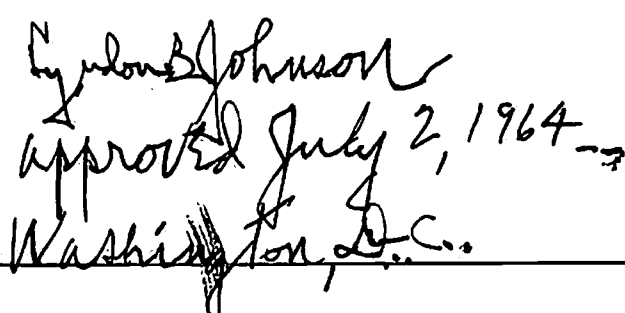 Lyndon B Johnson
approved July 2, 1964
Washington, D.C.